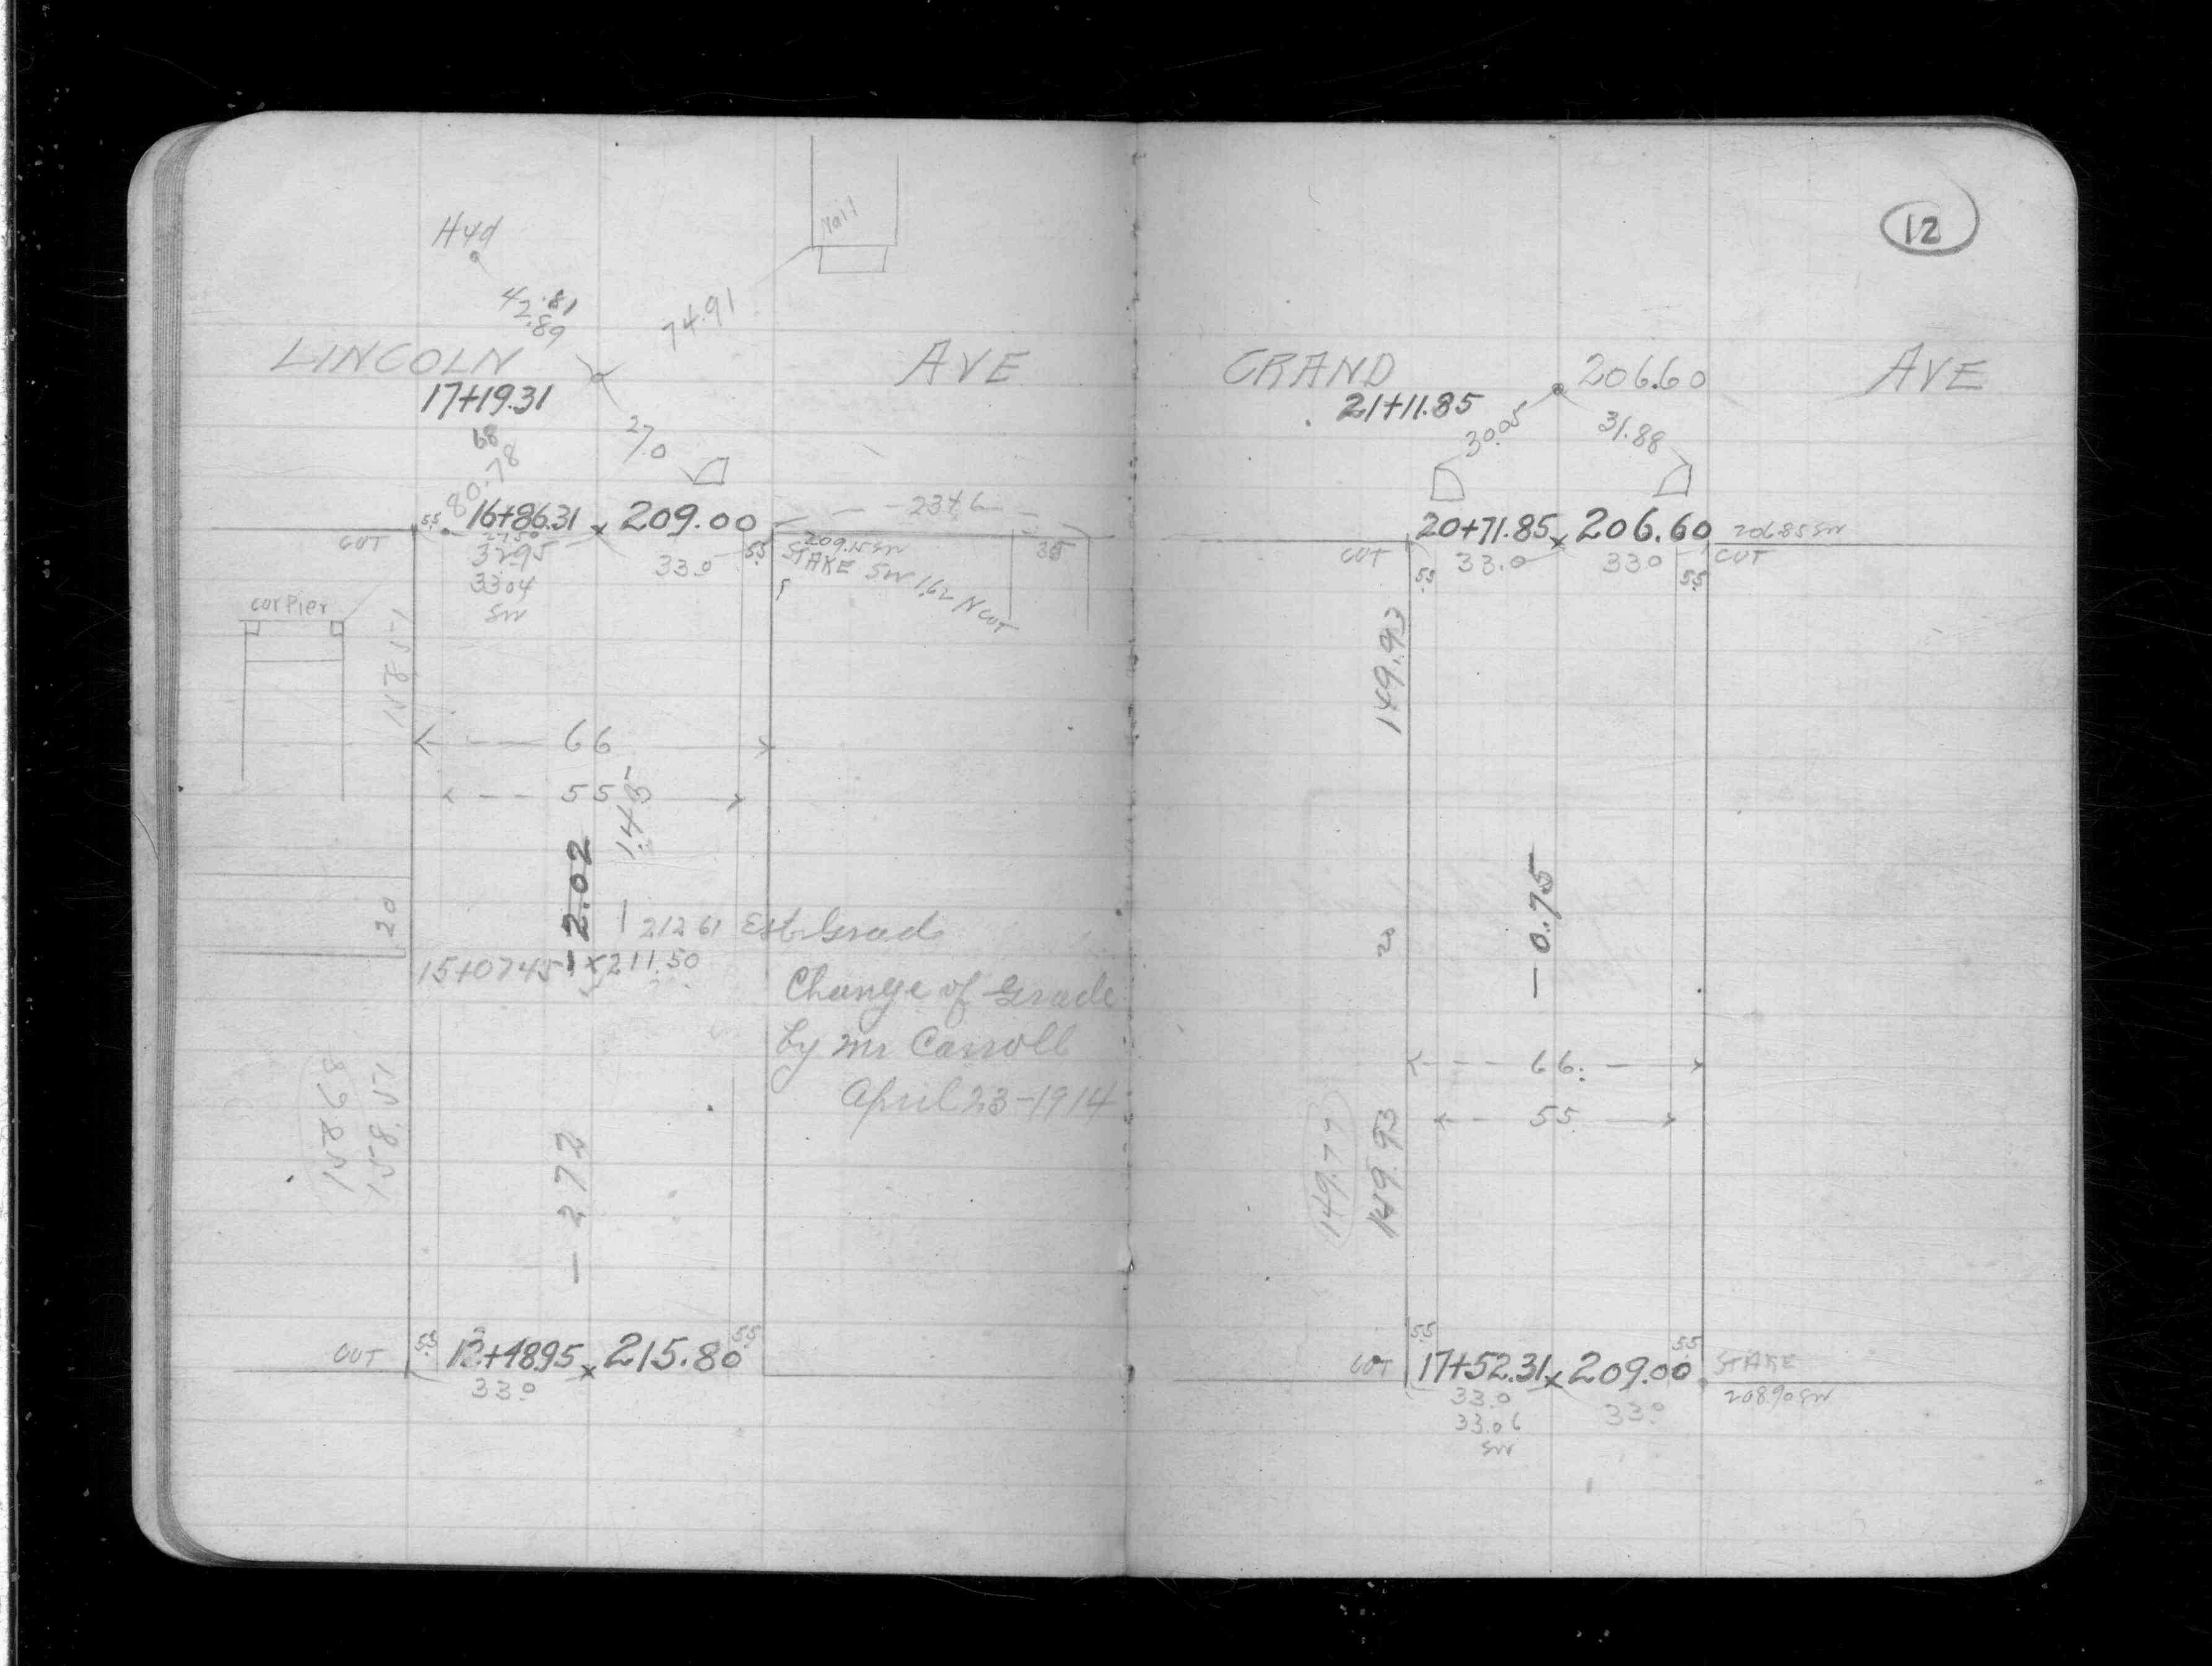 Hyd
42.81
.89
74.91
LINCOLN AVE
17+19.31
68
80.78
27.0
5.5 16+86.31 x 209.00
23+6
CUT
27.50
32.95
33.0
5.5
209.15 SW
STAKE SW 1.62 N CUT
35
33.04
SW
Cor Pier
158.51
66
55
1.45
-2.02
20
212.61 Est. Grade
15+07.45 x 211.50
Change of Grade
by Mr Carroll
April 23-1914
158.68
158.51
- 2.72
CUT 5.5 13+48.95 x 215.80 5.5
33.0
12
GRAND 206.60 AVE
21+11.85
30.05
31.88
20+71.85 x 206.60 206.85 SW
CUT 5.5 33.0 33.0 5.5 CUT
149.93
20
- 0.75
66
55
149.77
149.93
5.5
5.5
CUT 17+52.31 x 209.00 STAKE
33.0
33.0
208.90 SW
33.06
SW